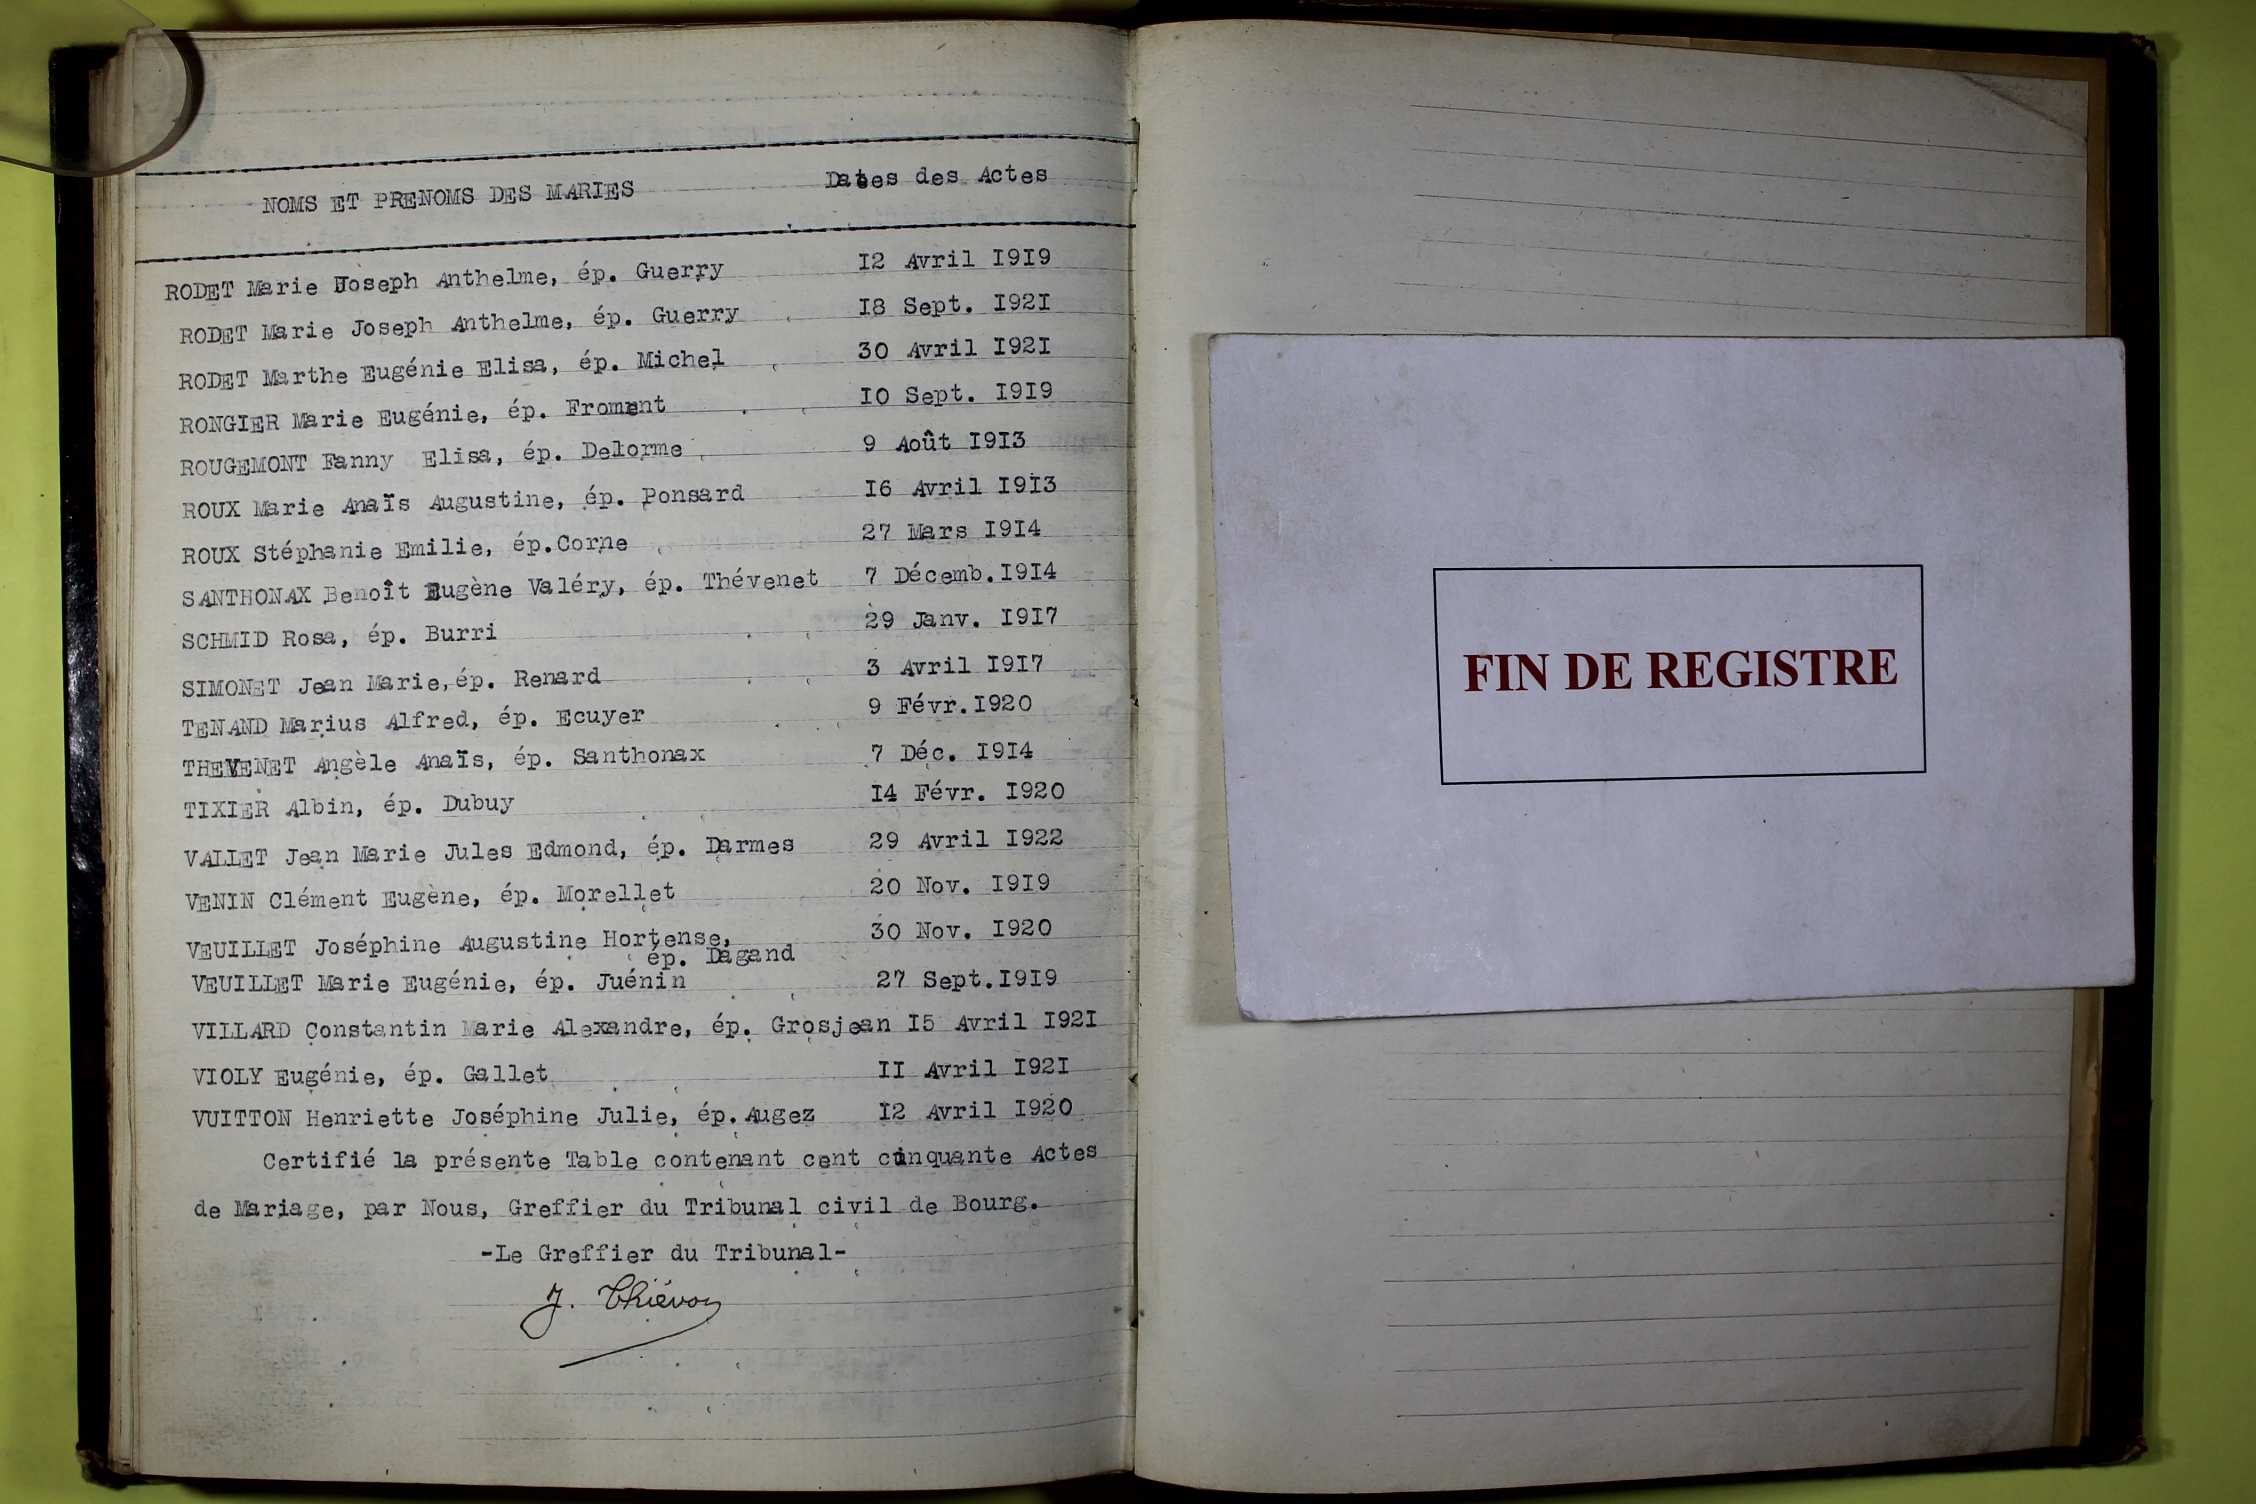 NOMS ET PRENOMS DES MARIES Dates des Actes
RODET Marie Joseph Anthelme, ép. Guerry 12 Avril 1919
RODET Marie Joseph Anthelme, ép. Guerry 18 Sept. 1921
RODET Marthe Eugénie Elisa, ép. Michel 30 Avril 1921
RONGIER Marie Eugénie, ép. Froment 10 Sept. 1919
ROUGEMONT Fanny Elisa, ép. Delorme 9 Août 1913
ROUX Marie Anaïs Augustine, ép. Ponsard 16 Avril 1913
ROUX Stéphanie Emilie, ép.Corne 27 Mars 1914
SANTHONAX Benoît Eugène Valéry, ép. Thévenet 7 Décemb.1914
SCHMID Rosa, ép. Burri 29 Janv. 1917
SIMONET Jean Marie, ép. Renard 3 Avril 1917
TENAND Marius Alfred, ép. Ecuyer 9 Févr.1920
THEVENET Angèle Anaïs, ép. Santhonax 7 Déc. 1914
TIXIER Albin, ép. Dubuy 14 Févr. 1920
VALLET Jean Marie Jules Edmond, ép. Darmes 29 Avril 1922
VENIN Clément Eugène, ép. Morellet 20 Nov. 1919
VEUILLET Joséphine Augustine Hortense, 30 Nov. 1920
ép. Dagand
VEUILLET Marie Eugénie, ép. Juénin 27 Sept.1919
VILLARD Constantin Marie Alexandre, ép. Grosjean 15 Avril 1921
VIOLY Eugénie, ép. Gallet 11 Avril 1921
VUITTON Henriette Joséphine Julie, ép. Augez 12 Avril 1920
Certifié la présente Table contenant cent cinquante Actes
de Mariage, par Nous, Greffier du Tribunal civil de Bourg.
-Le Greffier du Tribunal-
J. Thiévon
FIN DE REGISTRE